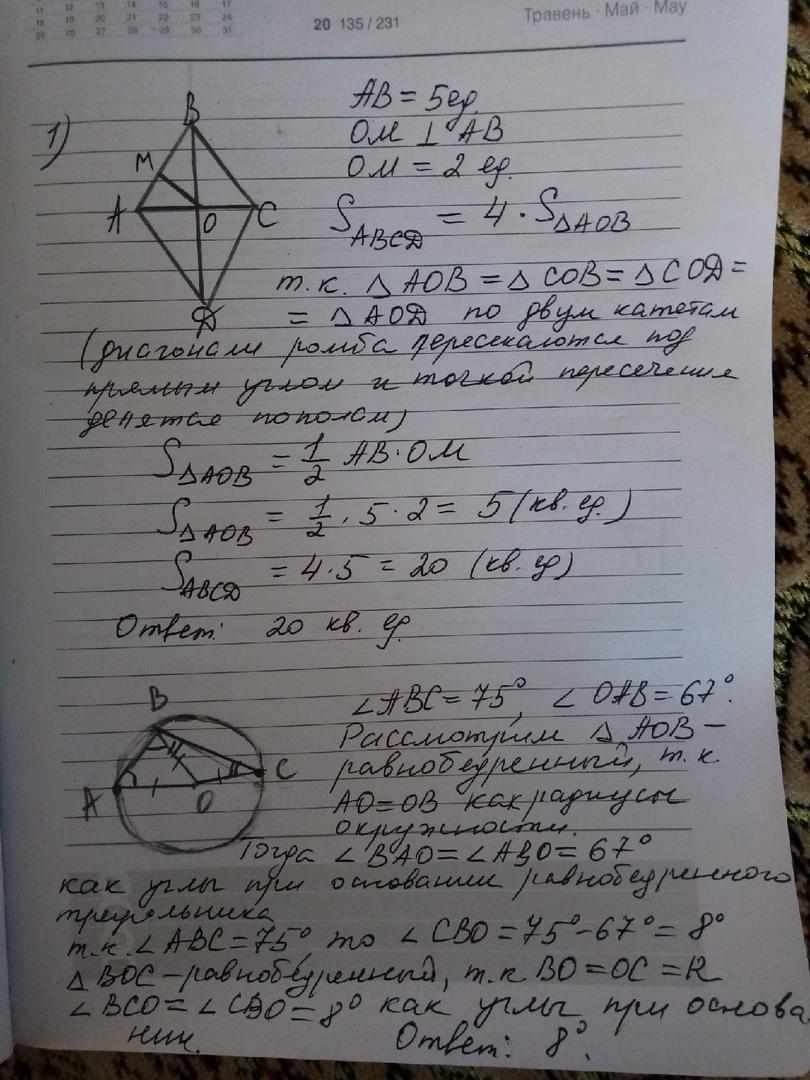 11 12 13 14 15 16 17
18 19 20 21 22 23 24
25 26 27 28 29 30 31
20 135 / 231
Травень · Май · May
1)
B
M
A
O
C
D
AB = 5 ед
OM ⊥ AB
OM = 2 ед.
S ABCD = 4 · S ΔAOB
т.к. Δ AOB = Δ COB = Δ COD =
= Δ AOD по двум катетам
(диагонали ромба пересекаются под
прямым углом и точкой пересечения
делятся пополам)
S ΔAOB = 1/2 AB · OM
S ΔAOB = 1/2 · 5 · 2 = 5 (кв. ед.)
S ABCD = 4 · 5 = 20 (кв. ед)
Ответ: 20 кв. ед.
B
A
O
C
∠ABC = 75°, ∠OAB = 67°.
Рассмотрим Δ AOB –
равнобедренный, т.к.
AO = OB как радиусы
окружности.
Тогда ∠BAO = ∠ABO = 67°
как углы при основании равнобедренного
треугольника
т.к. ∠ABC = 75°, то ∠CBO = 75° – 67° = 8°
Δ BOC – равнобедренный, т.к BO = OC = R
∠BCO = ∠CBO = 8° как углы при основа
нии. Ответ: 8°.